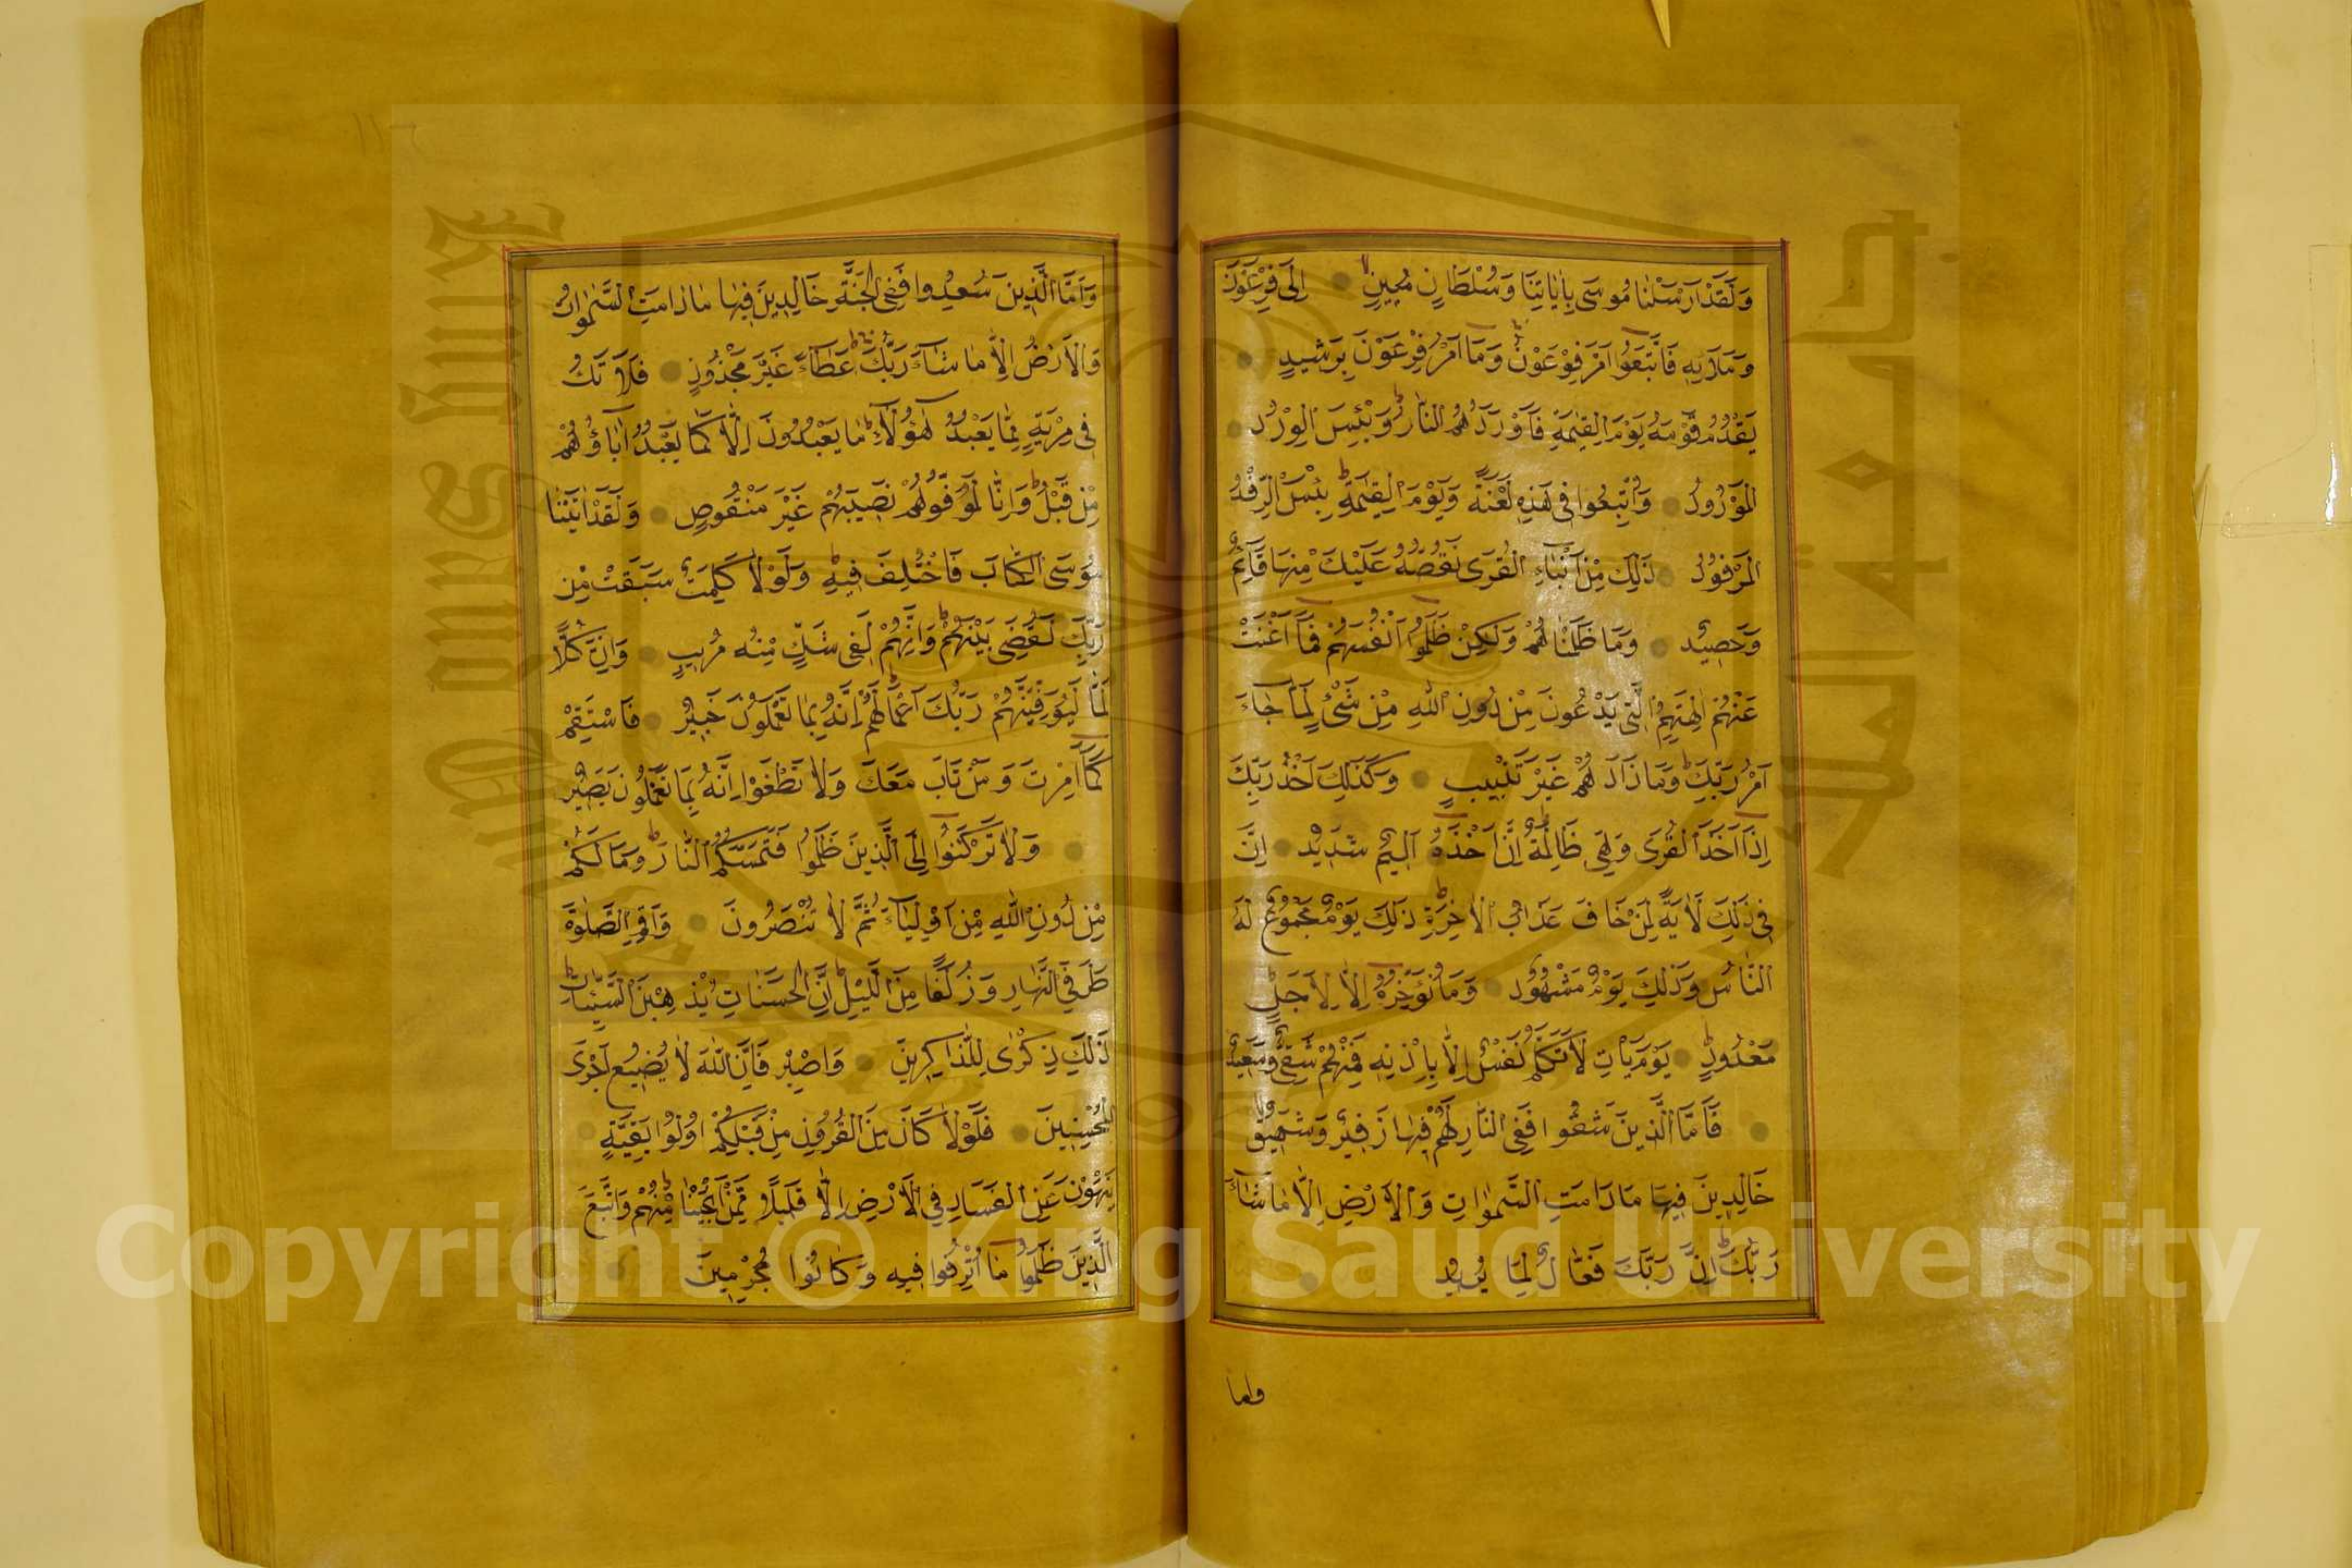 وَلَقَدْ اَرْسَلْنَا مُوسَى بِاٰيَاتِنَا وَسُلْطَانٍ مُبِينٍ اِلَى فِرْعَوْنَ
وَمَلَائِهِ فَاتَّبَعُوا اَمْرَ فِرْعَوْنَ وَمَا اَمْرُ فِرْعَوْنَ بِرَشِيدٍ
يَقْدُمُ قَوْمَهُ يَوْمَ الْقِيٰمَةِ فَاَوْرَدَهُمُ النَّارَ وَبِئْسَ الْوِرْدُ
الْمَوْرُودُ وَاُتْبِعُوا فِى هَذِهِ لَعْنَةً وَيَوْمَ الْقِيٰمَةِ بِئْسَ الرِّفْدُ
الْمَرْفُودُ ذَلِكَ مِنْ اَنْبَاءِ الْقُرَى نَقُصُّهُ عَلَيْكَ مِنْهَا قَآئِمٌ
وَحَصِيدٌ وَمَا ظَلَمْنَاهُمْ وَلَكِنْ ظَلَمُوا اَنْفُسَهُمْ فَمَا اَغْنَتْ
عَنْهُمْ اٰلِهَتُهُمُ الَّتِى يَدْعُونَ مِنْ دُونِ اللّٰهِ مِنْ شَىْءٍ لَمَّا جَاءَ
اَمْرُ رَبِّكَ وَمَا زَادُوهُمْ غَيْرَ تَتْبِيبٍ وَكَذَلِكَ اَخْذُ رَبِّكَ
اِذَا اَخَذَ الْقُرَى وَهِىَ ظَالِمَةٌ اِنَّ اَخْذَهُ اَلِيمٌ شَدِيدٌ اِنَّ
فِى ذَلِكَ لَاٰيَةً لِمَنْ خَافَ عَذَابَ الْاٰخِرَةِ ذَلِكَ يَوْمٌ مَجْمُوعٌ لَهُ
النَّاسُ وَذَلِكَ يَوْمٌ مَشْهُودٌ وَمَا نُؤَخِّرُهُ اِلَّا لِاَجَلٍ
مَعْدُودٍ يَوْمَ يَاْتِ لَا تَكَلَّمُ نَفْسٌ اِلَّا بِاِذْنِهِ فَمِنْهُمْ شَقِىٌّ وَسَعِيدٌ
فَاَمَّا الَّذِينَ شَقُوا فَفِى النَّارِ لَهُمْ فِيهَا زَفِيرٌ وَشَهِيقٌ
خَالِدِينَ فِيهَا مَا دَامَتِ السَّمٰوَاتُ وَالْاَرْضُ اِلَّا مَا شَاءَ
رَبُّكَ اِنَّ رَبَّكَ فَعَّالٌ لِمَا يُرِيدُ
واما
وَاَمَّا الَّذِينَ سُعِدُوا فَفِى الْجَنَّةِ خَالِدِينَ فِيهَا مَا دَامَتِ السَّمٰوَاتُ
وَالْاَرْضُ اِلَّا مَا شَاءَ رَبُّكَ عَطَاءً غَيْرَ مَجْذُوذٍ فَلَا تَكُ
فِى مِرْيَةٍ مِمَّا يَعْبُدُ هٰؤُلَاءِ مَا يَعْبُدُونَ اِلَّا كَمَا يَعْبُدُ اٰبَاؤُهُمْ
مِنْ قَبْلُ وَاِنَّا لَمُوَفُّوهُمْ نَصِيبَهُمْ غَيْرَ مَنْقُوصٍ وَلَقَدْ اٰتَيْنَا
مُوسَى الْكِتَابَ فَاخْتُلِفَ فِيهِ وَلَوْلَا كَلِمَةٌ سَبَقَتْ مِنْ
رَبِّكَ لَقُضِىَ بَيْنَهُمْ وَاِنَّهُمْ لَفِى شَكٍّ مِنْهُ مُرِيبٍ وَاِنَّ كُلًّا
لَمَّا لَيُوَفِّيَنَّهُمْ رَبُّكَ اَعْمَالَهُمْ اِنَّهُ بِمَا تَعْمَلُونَ خَبِيرٌ فَاسْتَقِمْ
كَمَا اُمِرْتَ وَمَنْ تَابَ مَعَكَ وَلَا تَطْغَوْا اِنَّهُ بِمَا تَعْمَلُونَ بَصِيرٌ
وَلَا تَرْكَنُوا اِلَى الَّذِينَ ظَلَمُوا فَتَمَسَّكُمُ النَّارُ وَمَا لَكُمْ
مِنْ دُونِ اللّٰهِ مِنْ اَوْلِيَاءَ ثُمَّ لَا تُنْصَرُونَ وَاَقِمِ الصَّلٰوةَ
طَرَفَىِ النَّهَارِ وَزُلَفًا مِنَ الَّيْلِ اِنَّ الْحَسَنَاتِ يُذْهِبْنَ السَّيِّئَاتِ
ذَلِكَ ذِكْرٰى لِلذَّاكِرِينَ وَاصْبِرْ فَاِنَّ اللّٰهَ لَا يُضِيعُ اَجْرَ
الْمُحْسِنِينَ فَلَوْلَا كَانَ مِنَ الْقُرُونِ مِنْ قَبْلِكُمْ اُولُوا بَقِيَّةٍ
يَنْهَوْنَ عَنِ الْفَسَادِ فِى الْاَرْضِ اِلَّا قَلِيلًا مِمَّنْ اَنْجَيْنَا مِنْهُمْ وَاتَّبَعَ
الَّذِينَ ظَلَمُوا مَا اُتْرِفُوا فِيهِ وَكَانُوا مُجْرِمِينَ
King Saud University
جامعة الملك
1957
Copyright © King Saud University